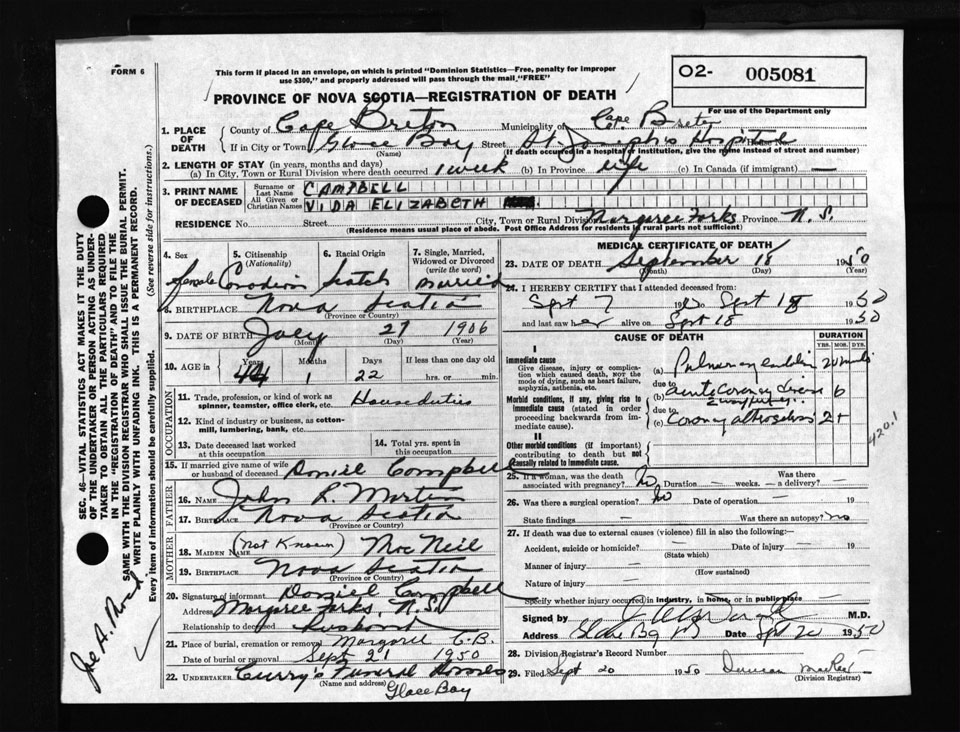 FORM 6
This form if placed in an envelope, on which is printed "Dominion Statistics—Free, penalty for improper
use $300," and properly addressed will pass through the mail, "FREE"
O2- 005081
For use of the Department only
PROVINCE OF NOVA SCOTIA—REGISTRATION OF DEATH
1. PLACE OF DEATH
County of Cape Breton Municipality of Cape Breton
If in City or Town Glace Bay Street St Joseph's Hospital
(Name) (If death occurred in a hospital or institution, give the name instead of street and number)
2. LENGTH OF STAY (in years, months and days)
(a) In City, Town or Rural Division where death occurred 1 week (b) In Province life (c) In Canada (if immigrant) —
3. PRINT NAME OF DECEASED
Surname or Last Name CAMPBELL
All Given or Christian Names VIDA ELIZABETH
RESIDENCE No. Street City, Town or Rural Division Margaree Forks Province N.S.
(Residence means usual place of abode. Post Office Address for residents in rural parts not sufficient)
4. Sex female
5. Citizenship (Nationality) Canadian
6. Racial Origin Scotch
7. Single, Married, Widowed or Divorced (write the word) married
8. BIRTHPLACE Nova Scotia
(Province or Country)
9. DATE OF BIRTH July 27 1906
(Month) (Day) (Year)
10. AGE in Years Months Days If less than one day old
44 1 22 hrs. or min.
OCCUPATION
11. Trade, profession, or kind of work as
spinner, teamster, office clerk, etc. House duties
12. Kind of industry or business, as cotton-
mill, lumbering, bank, etc.
13. Date deceased last worked
at this occupation
14. Total yrs. spent in
this occupation
15. If married give name of wife
or husband of deceased Daniel Campbell
FATHER
16. Name John L. Martin
17. Birthplace Nova Scotia
(Province or Country)
MOTHER
18. Maiden Name (Not Known) MacNeil
19. Birthplace Nova Scotia
(Province or Country)
20. Signature of informant Daniel Campbell
Address Margaree Forks, N.S.
Relationship to deceased Husband
21. Place of burial, cremation or removal Margaree C.B.
Date of burial or removal Sept 21 1950
22. UNDERTAKER Curry's Funeral Homes
(Name and address)
Glace Bay
MEDICAL CERTIFICATE OF DEATH
23. DATE OF DEATH September 18 1950
(Month) (Day) (Year)
24. I HEREBY CERTIFY that I attended deceased from:
Sept 7 19 to Sept 18 1950
and last saw her alive on Sept 18 1950
CAUSE OF DEATH
DURATION
YRS. MOS. DYS.
I
Immediate cause
Give disease, injury or complica-
tion which caused death, NOT the
mode of dying, such as heart failure,
asphyxia, asthenia, etc.
(a) Pulmonary 20
due to
Morbid conditions, if any, giving rise to
immediate cause (stated in order
proceeding backwards from im-
mediate cause).
(b) acute Coronary 6
due to
(c) Coronary 2+
420.1
II
Other morbid conditions (if important)
contributing to death but not
causally related to immediate cause.
25. If a woman, was the death
associated with pregnancy? No Duration — weeks. Was there
— a delivery? —
26. Was there a surgical operation? No Date of operation — 19
State findings — Was there an autopsy? no
27. If death was due to external causes (violence) fill in also the following:—
Accident, suicide or homicide? — Date of injury — 19
(State which)
Manner of injury —
(How sustained)
Nature of injury —
Specify whether injury occurred in industry, in home, or in public place
Signed by M.D.
Address Glace Bay Date Sept 20 1950
28. Division Registrar's Record Number
29. Filed Sept 20 1950 Duncan
(Division Registrar)
SEC. 46—VITAL STATISTICS ACT MAKES IT THE DUTY
OF THE UNDERTAKER OR PERSON ACTING AS UNDER-
TAKER TO OBTAIN ALL THE PARTICULARS REQUIRED
IN THE "REGISTRATION OF DEATH" AND TO FILE THE
SAME WITH THE DIVISION REGISTRAR WHO SHALL ISSUE THE BURIAL PERMIT.
WRITE PLAINLY WITH UNFADING INK. THIS IS A PERMANENT RECORD.
Every item of information should be carefully supplied. (See reverse side for instructions.)
Joe A.